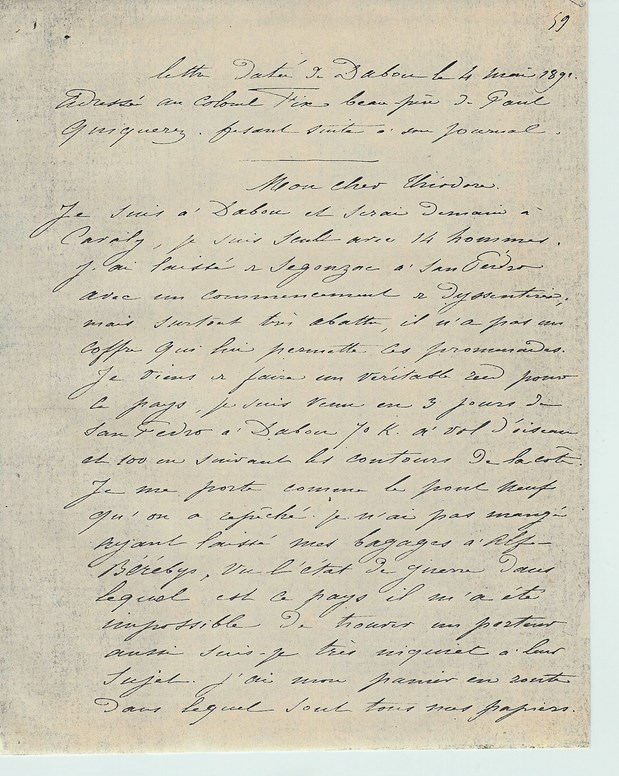 59
lettre datée de Dabou le 4 mai 1891.
Adressée au colonel Fix beau père de Paul
Quiquerez. fesant suite à son journal.
Mon cher Théodore.
Je suis à Dabou et serai demain à
Cavaly, je suis seul avec 14 hommes.
J'ai laissé de Segonzac à San Pédro
avec un commencement de dyssenterie,
mais surtout très abattu, il n'a pas un
coffre qui lui permette ces promenades.
Je viens de faire un véritable raid pour
le pays, je suis venu en 3 jours de
San Pedro à Dabou 70 K. à vol d'oiseau
et 100 en suivant les contours de la côte.
Je me porte comme le pont neuf
qu'on a repêché. je n'ai pas mangé
ayant laissé mes bagages à
Béréby, vu l'état de guerre dans
lequel est ce pays il m'a été
impossible de trouver un porteur
aussi suis-je très inquiet à leur
sujet. j'ai mon panier en route
dans lequel sont tous mes papiers.